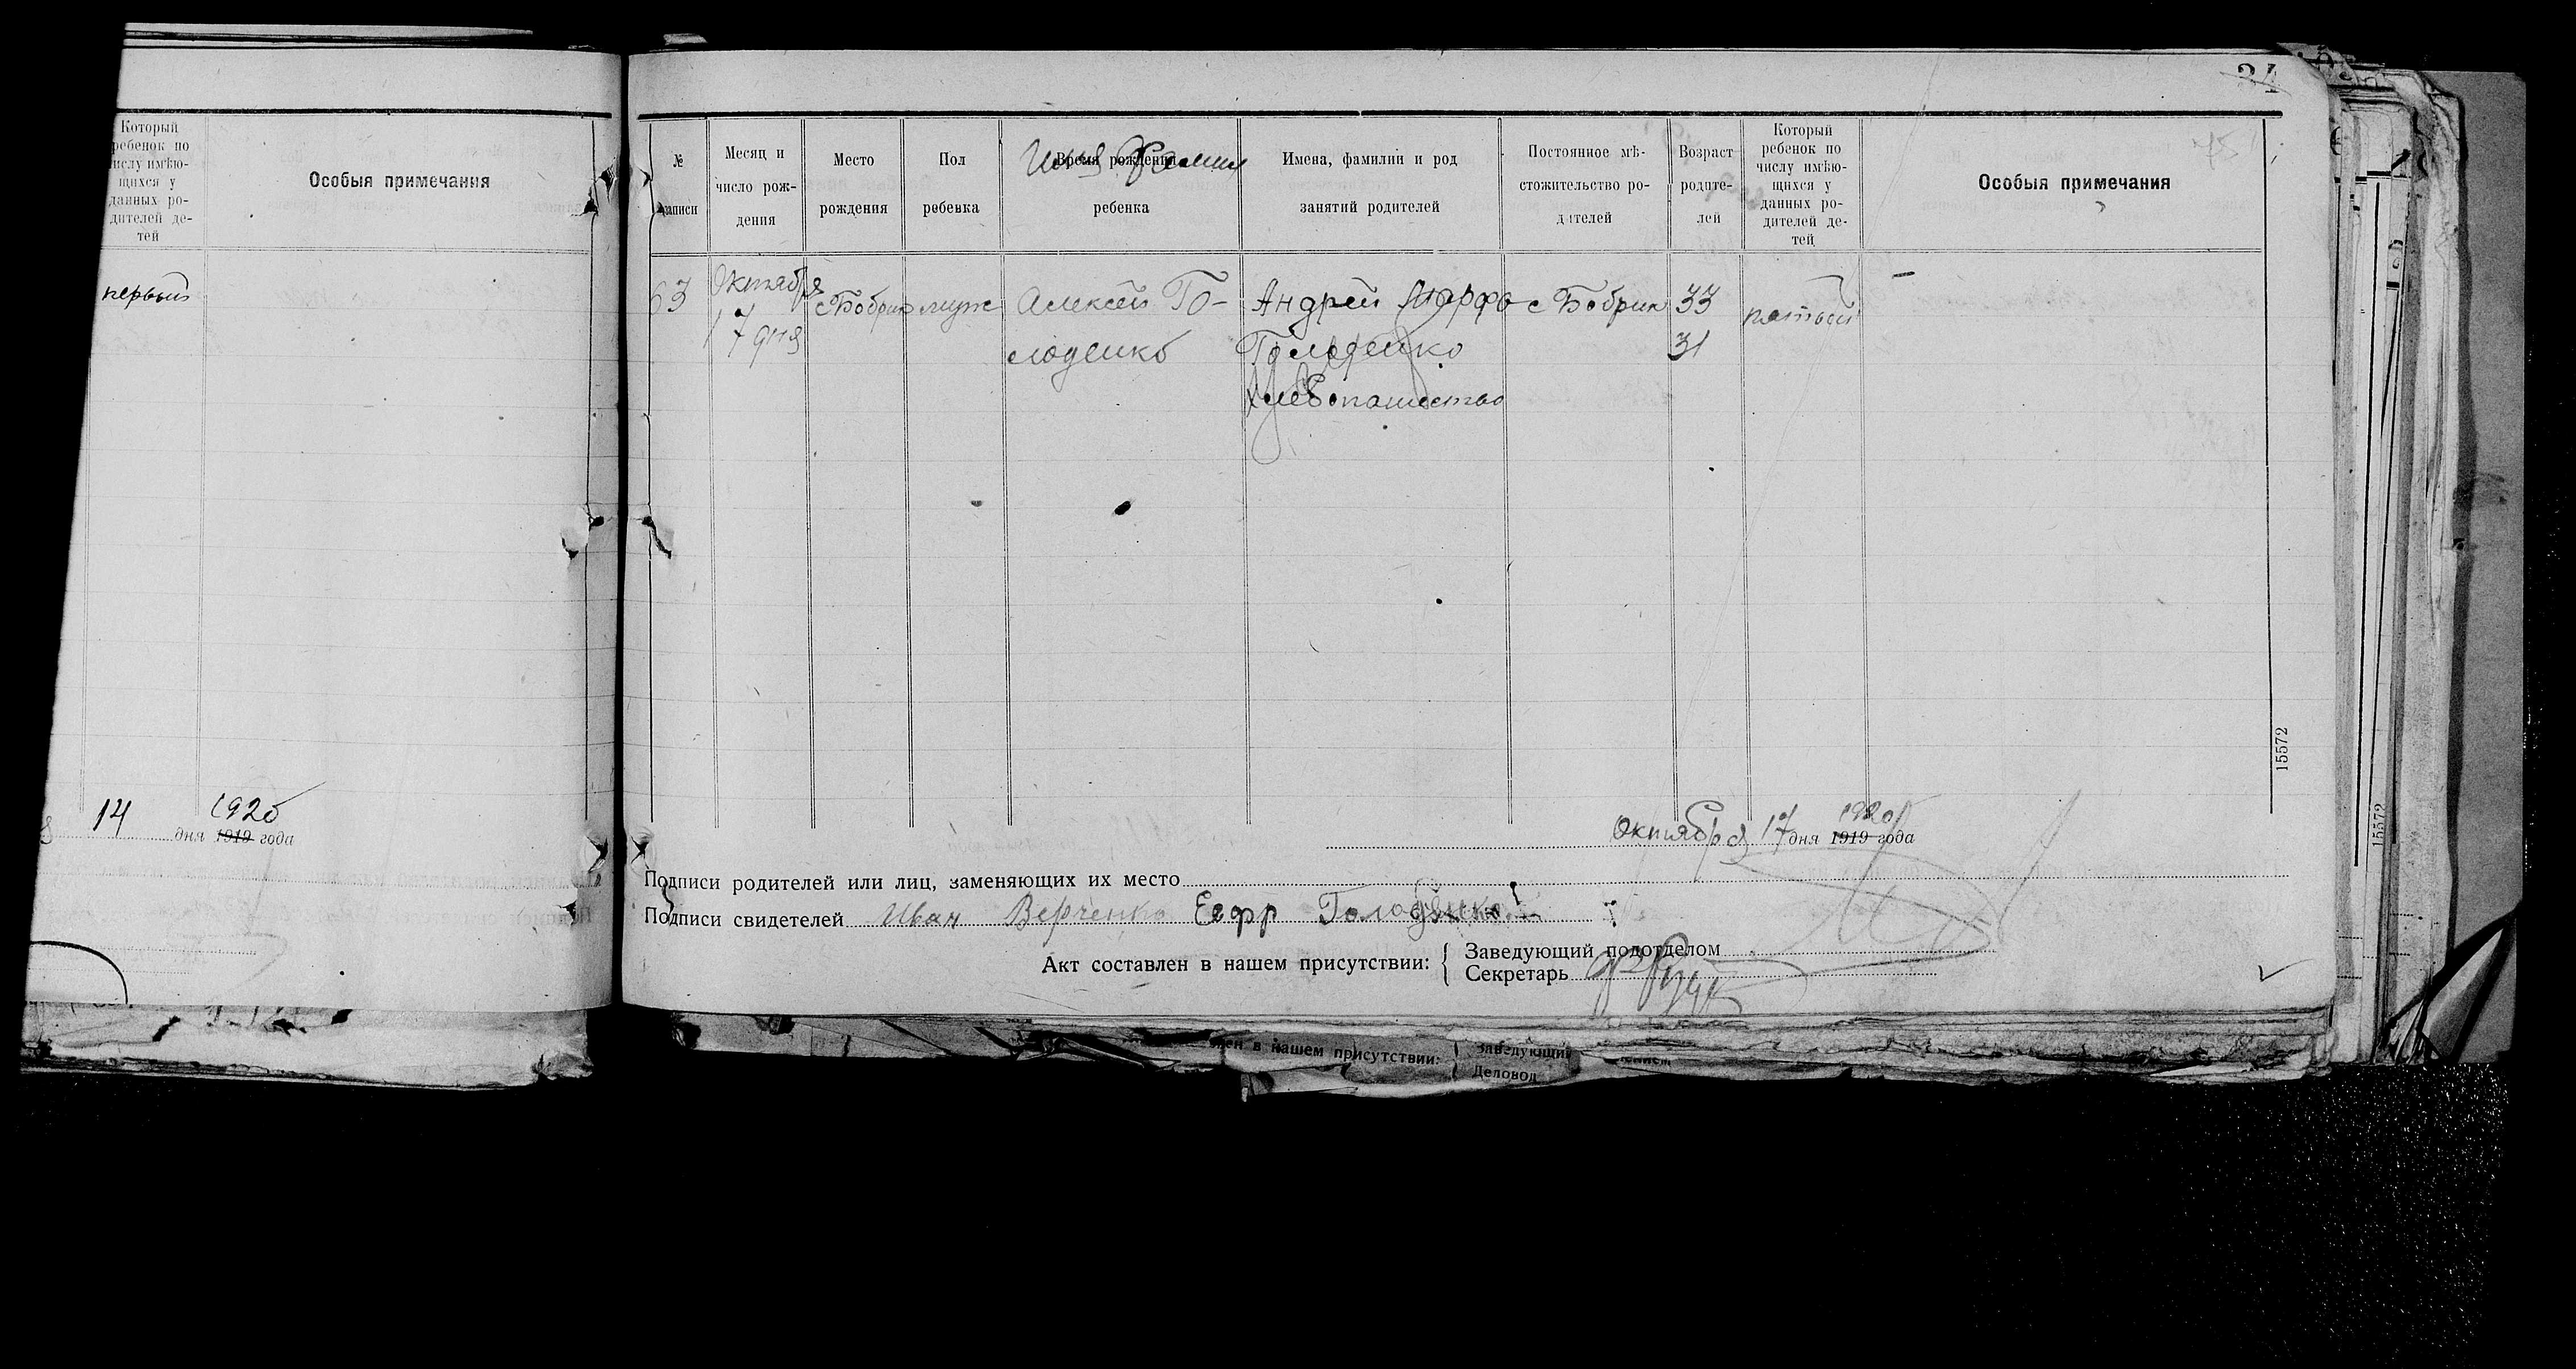 Который
ребенок по
числу имѣю-
щихся у
данных ро-
дителей де-
тей
Особыя примечания
первый
14 дня 1919 года
1920
34
№
записи
Месяц и
число рож-
дения
Место
рождения
Пол
ребенка
Время рождения
Имя Фамил
ребенка
Имена, фамилии и род
занятий родителей
Постоянное мѣ-
стожительство ро-
дителей
Возраст
родите-
лей
Который
ребенок по
числу имѣю-
щихся у
данных ро-
дителей де-
тей
Особыя примечания
63
Октября
17 дня
с Бобрик
муж
Алексей Го-
лоденко
Андрей Марфа
Голоденко
Хлебопашество
с Бобрик
33
31
пятый
–
15572
1920
Октября 17 дня 1919 года
Подписи родителей или лиц, заменяющих их место
Подписи свидетелей Иван Верченко Еефр Голоденко
Акт составлен в нашем присутствии: { Заведующий подотделом
Секретарь
15572
в нашем присутствии: { Заведующий
Деловод